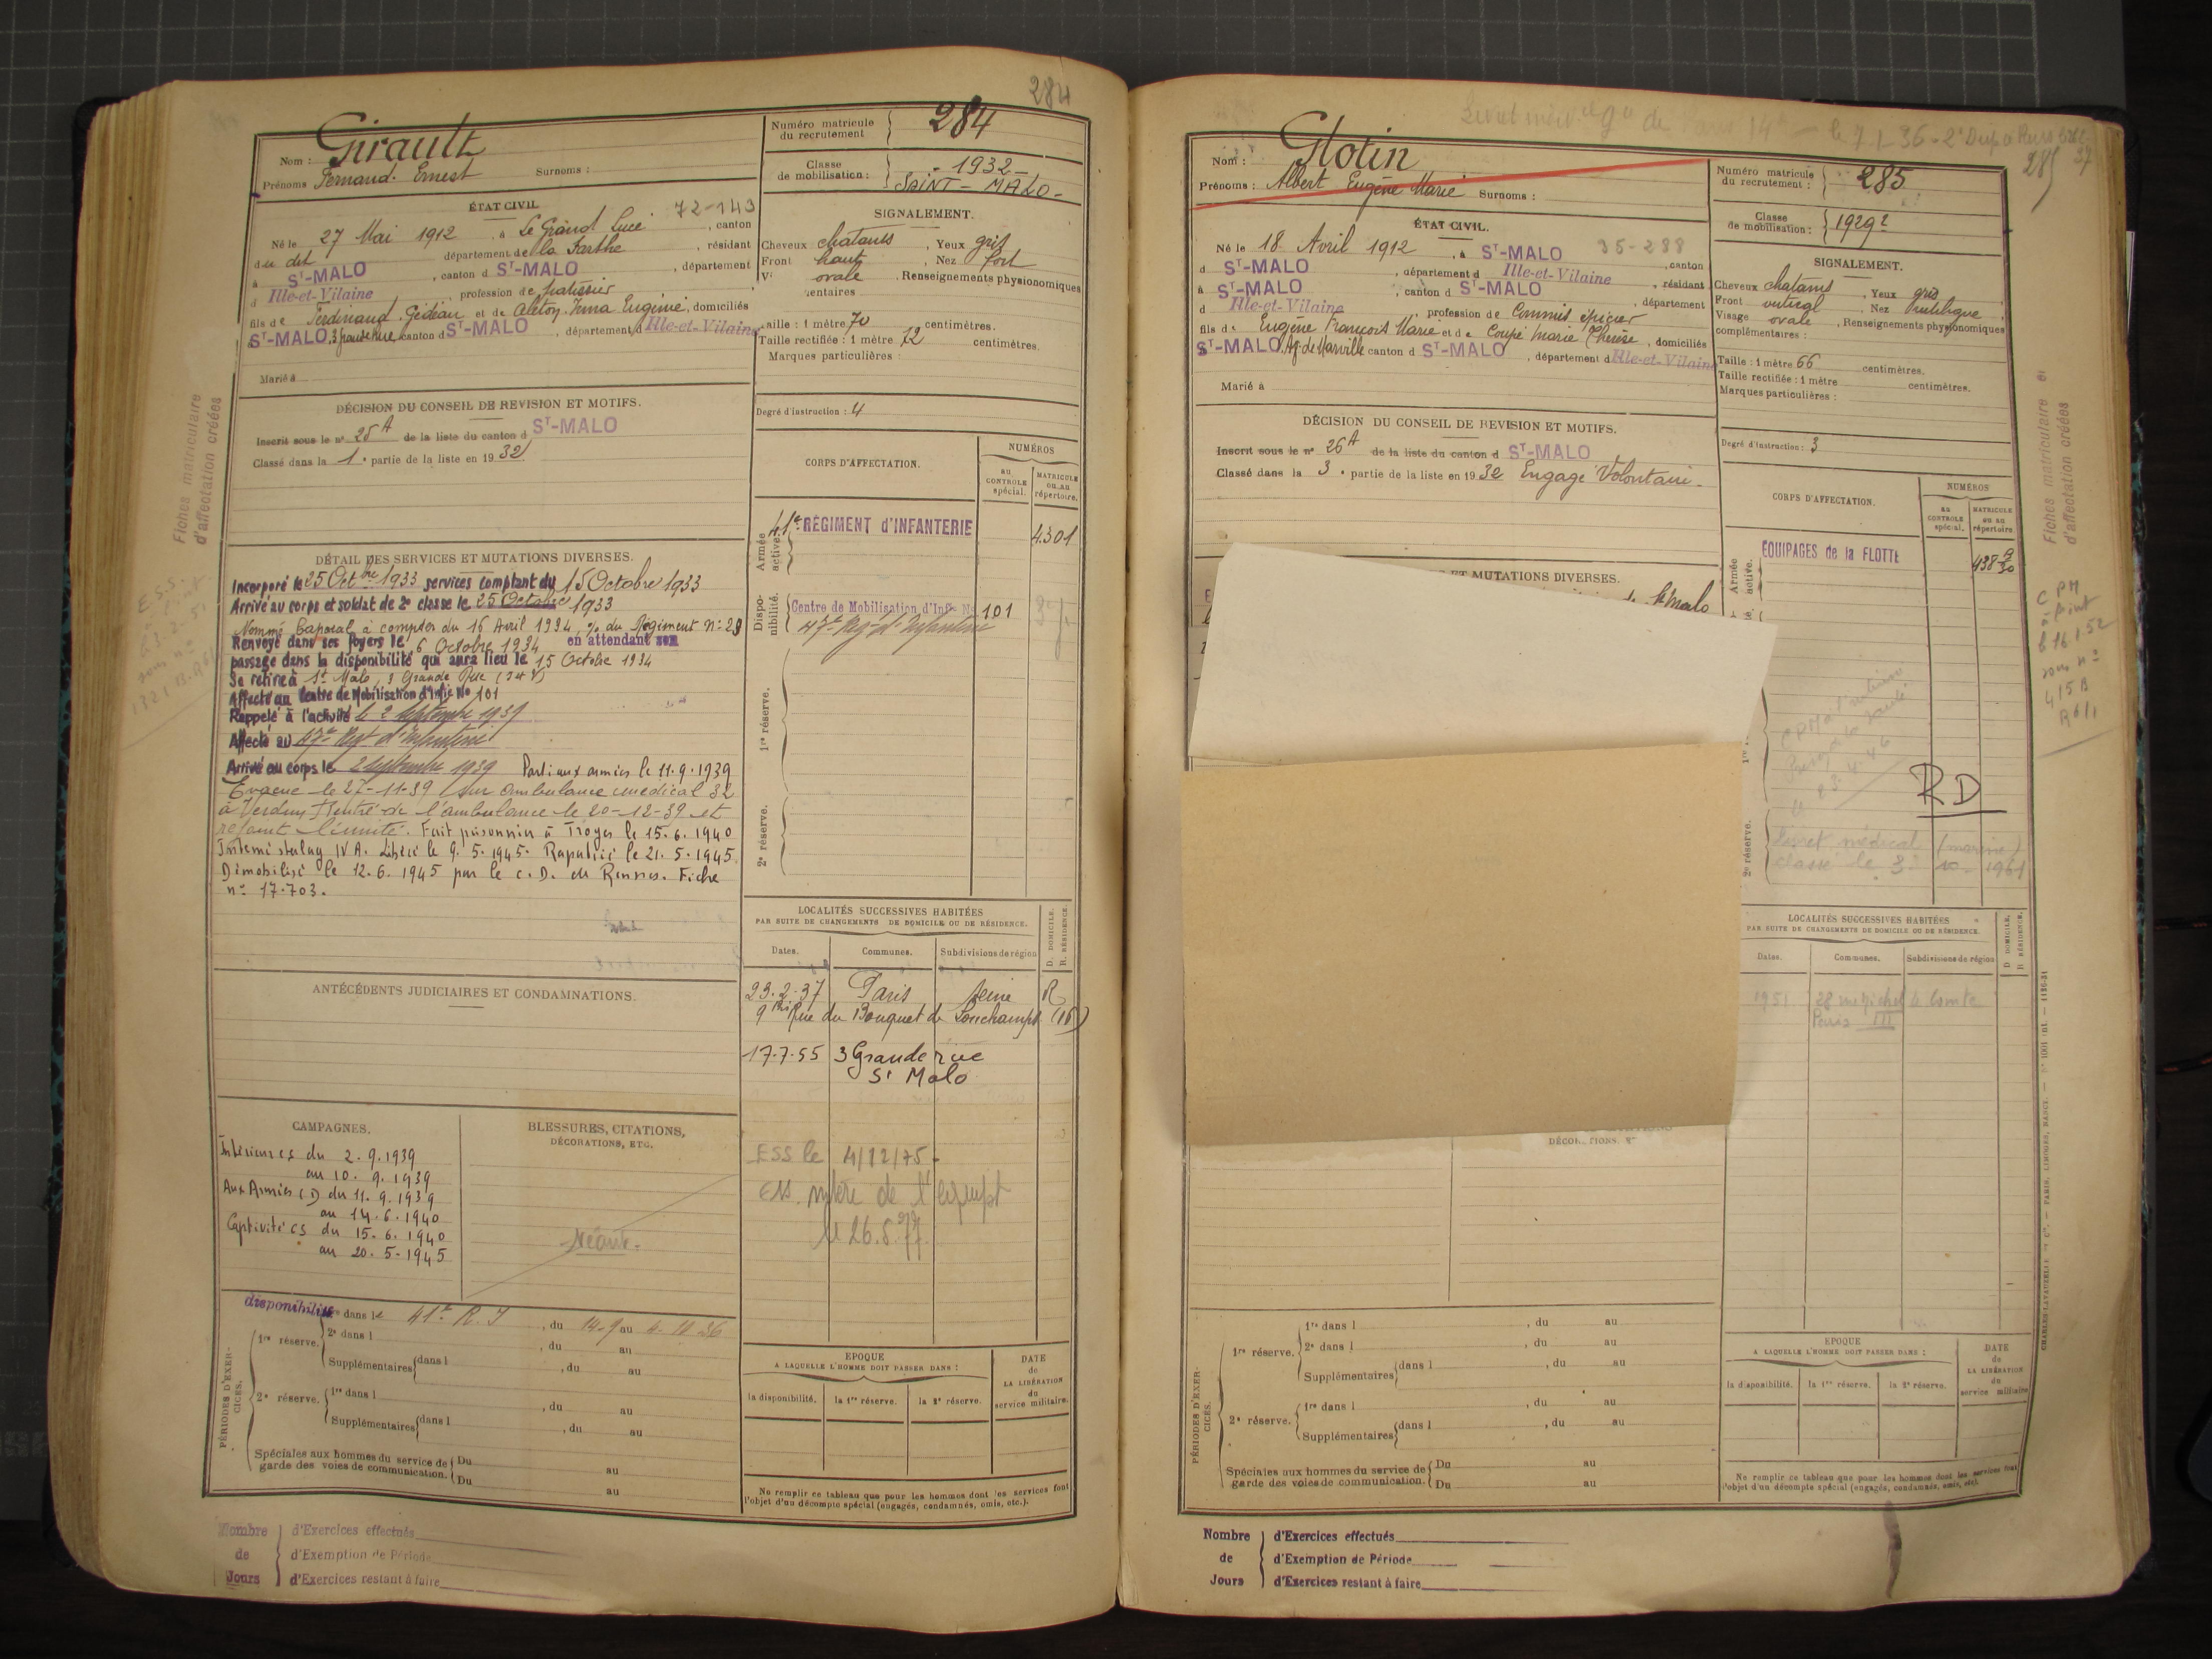 284
Nom : Girault
Prénoms Fernand Ernest Surnoms :
Numéro matricule du recrutement 284
Classe de mobilisation : - 1932 -
SAINT-MALO-
ÉTAT CIVIL 72-143
Né le 27 Mai 1912, à Le Grand Lucé, canton
du dit département de la Sarthe, résidant
à ST-MALO, canton d ST-MALO, département
d Ille-et-Vilaine, profession de patissier
fils de Ferdinand Gédéan et de Aleton Irma Eugénie, domiciliés
à ST-MALO 3 grande Rue, canton d ST-MALO, département d Ille-et-Vilaine
Marié à
SIGNALEMENT.
Cheveux chatains, Yeux gris
Front haut, Nez fort
Vi ovale, Renseignements physionomiques
entaires
aille : 1 mètre 70 centimètres.
Taille rectifiée : 1 mètre 72 centimètres.
Marques particulières :
Degré d'instruction : 4
DÉCISION DU CONSEIL DE REVISION ET MOTIFS.
Inscrit sous le nº 25 A de la liste du canton d ST-MALO
Classé dans la 1e partie de la liste en 1932
CORPS D'AFFECTATION.
NUMÉROS
au CONTROLE spécial.
MATRICULE ou au répertoire.
Armée active.
41e RÉGIMENT d'INFANTERIE 4301
Disponibilité.
Centre de Mobilisation d'Infie No 101
47e Rég. d'Infanterie
1re réserve.
2e réserve.
DÉTAIL DES SERVICES ET MUTATIONS DIVERSES.
Incorporé le 25 Octbre 1933 services comptant du 15 Octobre 1933
Arrivé au corps et soldat de 2e classe le 25 Octobre 1933
Nommé Caporal à compter du 16 Avril 1934, % du Régiment nº 29
Renvoyé dans ses foyers le 6 Octobre 1934 en attendant son
passage dans la disponibilité qui aura lieu le 15 Octobre 1934
Se retire à St Malo, 3 Grande Rue (I et V)
Affecté au Centre de Mobilisation d'Infie No 101
Rappelé à l'activité le 2 Septembre 1939
Affecté au 47e Rgt d'Infanterie
Arrivé au corps le 2 Septembre 1939 Parti aux armées le 11.9.1939
Evacué le 27-11-39 sur ambulance médical 32
à Verdun Rentré de l'ambulance le 20-12-39 et
rejoint l'unité. Fait prisonnier à Troyes le 15.6.1940
Interné stalag IV A. Libéré le 9.5.1945. Rapatrié le 21.5.1945
Démobilisé le 12.6.1945 par le C.D. de Rennes. Fiche
nº 17.703.
LOCALITÉS SUCCESSIVES HABITÉES
PAR SUITE DE CHANGEMENTS DE DOMICILE OU DE RÉSIDENCE.
D. DOMICILE.
R. RÉSIDENCE.
Dates. Communes. Subdivisions de région
23.2.37 Paris Seine R
9 bis Rue du Bouquet de Lonchamps (16)
17.7.55 3 Grande rue
St Malo
ESS le 4/12/75-
ANTÉCÉDENTS JUDICIAIRES ET CONDAMNATIONS.
CAMPAGNES.
Intérieures du 2.9.1939
au 10.9.1939
Aux Armées (D) du 11.9.1939
au 14.6.1940
Captivité CS du 15.6.1940
au 20.5.1945
BLESSURES, CITATIONS,
DÉCORATIONS, ETC.
Néant.
PÉRIODES D'EXERCICES.
disponibilité re dans le 41e R.I, du 14-9 au 4-10-36
1re réserve. 2e dans l , du au
Supplémentaires dans l , du au
2e réserve. 1re dans l , du au
Supplémentaires dans l , du au
Spéciales aux hommes du service de garde des voies de communication. Du au
Du au
EPOQUE
A LAQUELLE L'HOMME DOIT PASSER DANS :
la disponibilité. la 1re réserve. la 2e réserve.
DATE de LA LIBÉRATION du service militaire.
Ne remplir ce tableau que pour les hommes dont les services font
l'objet d'un décompte spécial (engagés, condamnés, omis, etc.).
Nombre de Jours
d'Exercices effectués
d'Exemption de Période
d'Exercices restant à faire
Fiches matriculaire
d'affectation créées
285
Nom : Glotin
Prénoms : Albert Eugène Marie Surnoms :
Numéro matricule du recrutement : 285
Classe de mobilisation : 1929 2
ÉTAT CIVIL.
Né le 18 Avril 1912, à ST-MALO 35-288
d ST-MALO, département d Ille-et-Vilaine, canton
à ST-MALO, canton d ST-MALO, résidant
d Ille-et-Vilaine, profession de Commis épicier, département
fils de Eugène François Marie et de Coupé Marie Thérèse, domiciliés
à ST-MALO, canton d ST-MALO, département d Ille-et-Vilaine
Marié à
SIGNALEMENT.
Cheveux chatains, Yeux gris
Front vertical, Nez rectiligne
Visage ovale, Renseignements physionomiques
complémentaires :
Taille : 1 mètre 66 centimètres.
Taille rectifiée : 1 mètre centimètres.
Marques particulières :
Degré d'instruction : 3
DÉCISION DU CONSEIL DE REVISION ET MOTIFS.
Inscrit sous le nº 26 A de la liste du canton d ST-MALO
Classé dans la 3e partie de la liste en 1932 Engagé Volontaire.
CORPS D'AFFECTATION.
NUMÉROS
au CONTROLE spécial.
MATRICULE ou au répertoire.
Armée active.
EQUIPAGES de la FLOTTE
ET MUTATIONS DIVERSES.
St Malo
RD
2e réserve.
Livret médical (marine)
classé le 3 - 10 - 1961
LOCALITÉS SUCCESSIVES HABITÉES
PAR SUITE DE CHANGEMENTS DE DOMICILE OU DE RÉSIDENCE.
D. DOMICILE.
R. RÉSIDENCE.
Dates. Communes. Subdivisions de région
1951 28 rue Michel le Comte
Paris III
PÉRIODES D'EXERCICES.
1re réserve. 1re dans l , du au
2e dans l , du au
Supplémentaires dans l , du au
2e réserve. 1re dans l , du au
Supplémentaires dans l , du au
Spéciales aux hommes du service de garde des voies de communication. Du au
Du au
EPOQUE
A LAQUELLE L'HOMME DOIT PASSER DANS :
la disponibilité. la 1re réserve. la 2e réserve.
DATE de LA LIBÉRATION du service militaire
Ne remplir ce tableau que pour les hommes dont les services font
l'objet d'un décompte spécial (engagés, condamnés, omis, etc.).
Nombre de Jours
d'Exercices effectués
d'Exemption de Période
d'Exercices restant à faire
Fiches matriculaire et
d'affectation créées